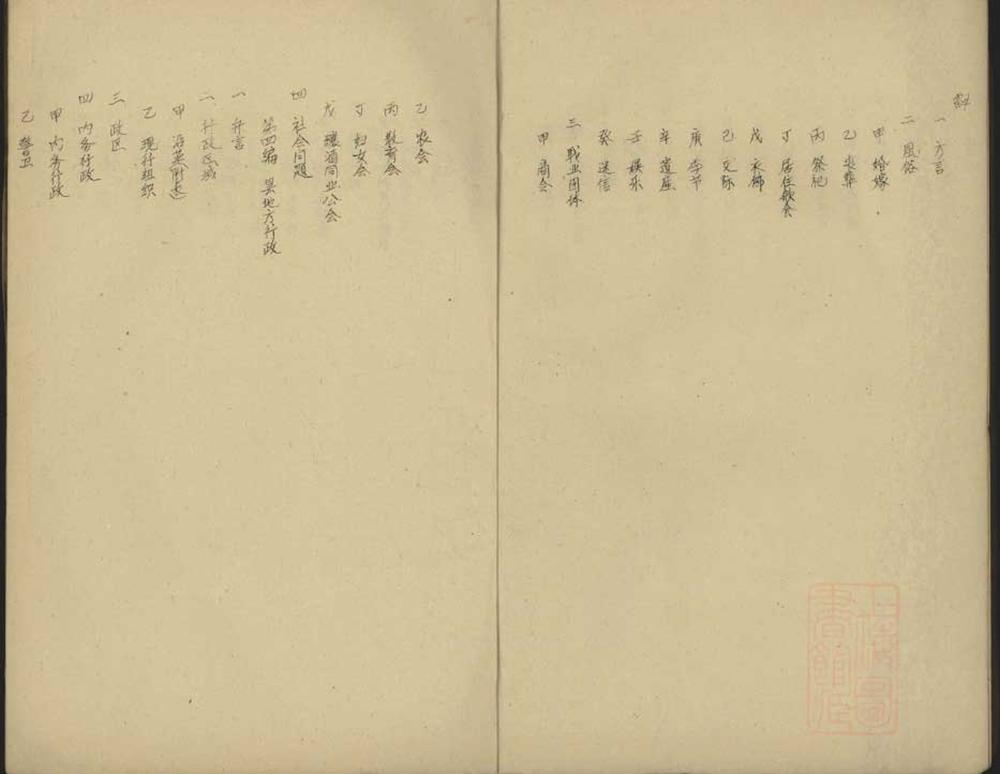 一 方言
二 風俗
甲 婚嫁
乙 丧葬
丙 祭祀
丁 居住飲食
戊 衣佛
己 交际
庚 季节
辛 遺産
壬 娱乐
癸 迷信
三 戢业团体
甲 商会
乙 农会
丙 教育会
丁 妇女会
戊 瓖酒同业公会
四 社会问题
第四編 吴地方行政
一 弁言
二 行政区域
甲 沿革附志
乙 现行组织
三 政区
四 内务行政
甲 内务行政
乙 警卫
上海圖書館